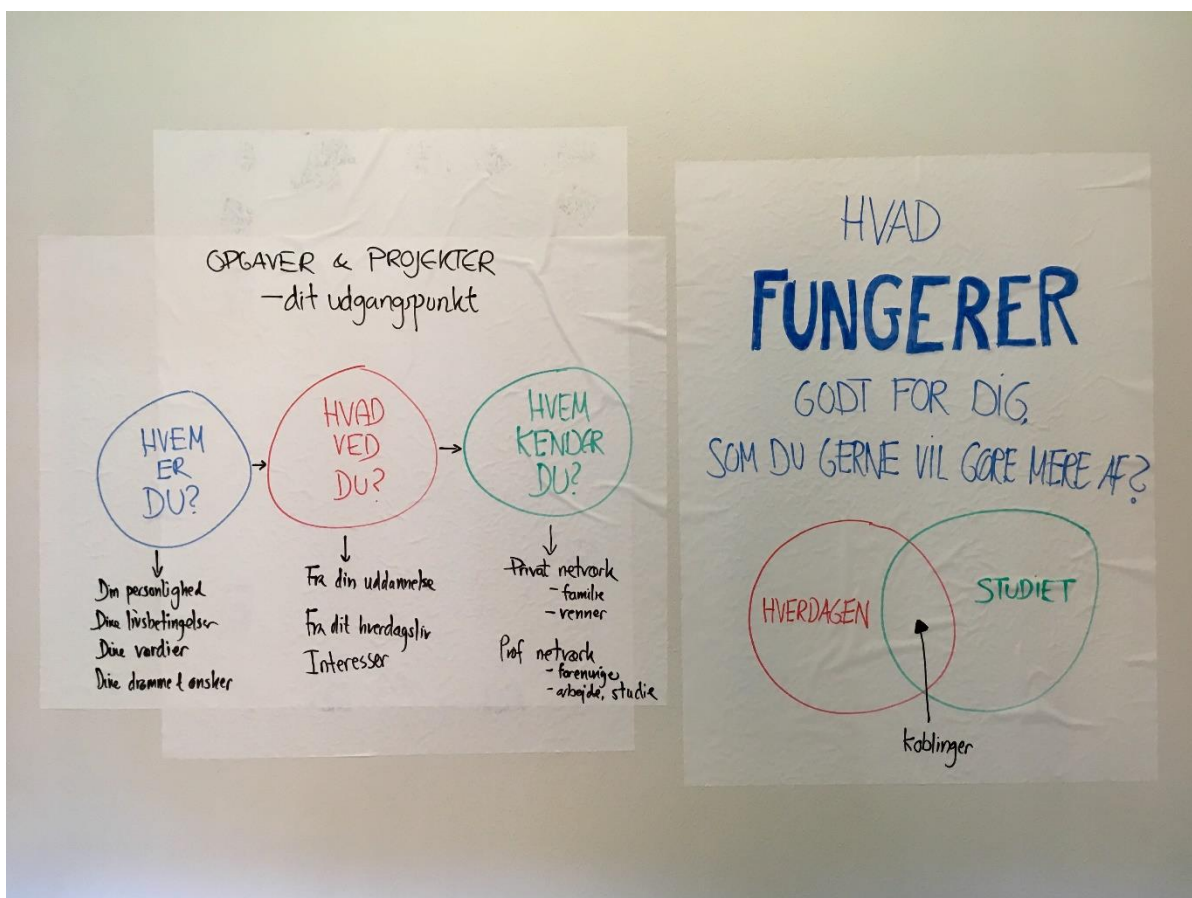 OPGAVER & PROJEKTER
–dit udgangspunkt
HVEM
ER
DU?
Din personlighed
Dine livsbetingelser
Dine værdier
Dine drømme & ønsker
HVAD
VED
DU?
Fra din uddannelse
Fra dit hverdagsliv
Interesser
HVEM
KENDER
DU?
Privat netværk
- familie
- venner
Prof netværk
- foreninger
- arbejde, studie
HVAD
FUNGERER
GODT FOR DIG,
SOM DU GERNE VIL GØRE MERE AF?
HVERDAGEN
STUDIET
koblinger